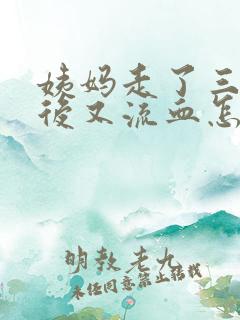 姨妈走了三
后又流血怎
明教老九
未经同意禁止转载